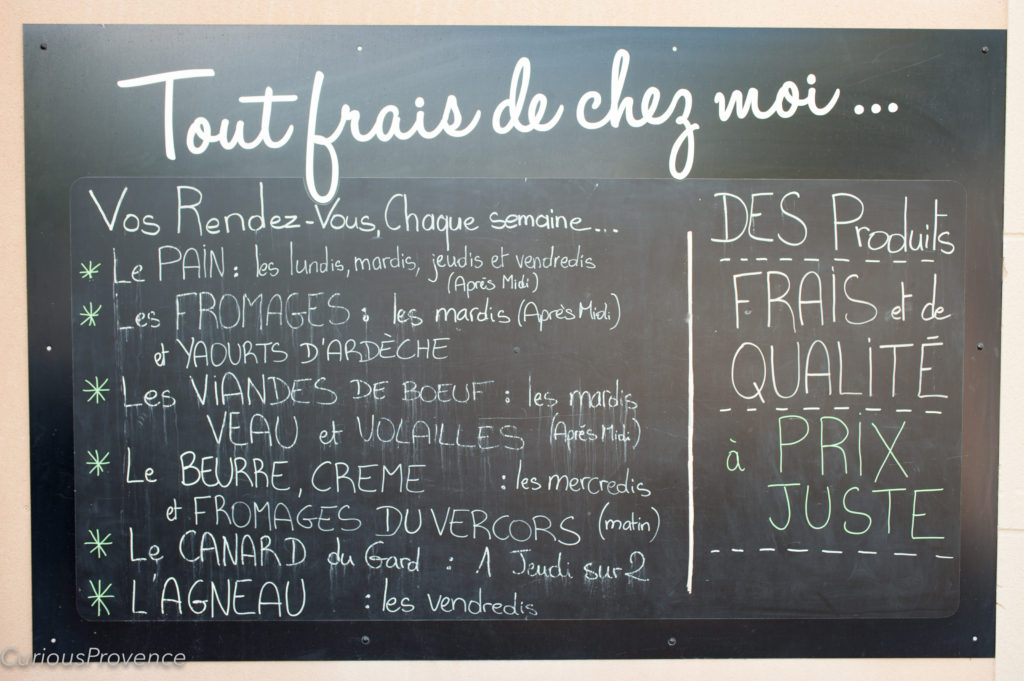 Tout frais de chez moi...
Vos Rendez-Vous, Chaque semaine...
* Le PAIN : les lundis, mardis, jeudis et vendredis
(Après Midi)
* Les FROMAGES : les mardis (Après Midi)
et YAOURTS D'ARDÈCHE
* Les VIANDES DE BOEUF : les mardis
VEAU et VOLAILLES (Après Midi)
* Le BEURRE, CREME : les mercredis
et FROMAGES DU VERCORS (matin)
* Le CANARD du Gard : 1 Jeudi sur 2
* L'AGNEAU : les vendredis
DES Produits
FRAIS et de
QUALITÉ
à PRIX
JUSTE
CuriousProvence